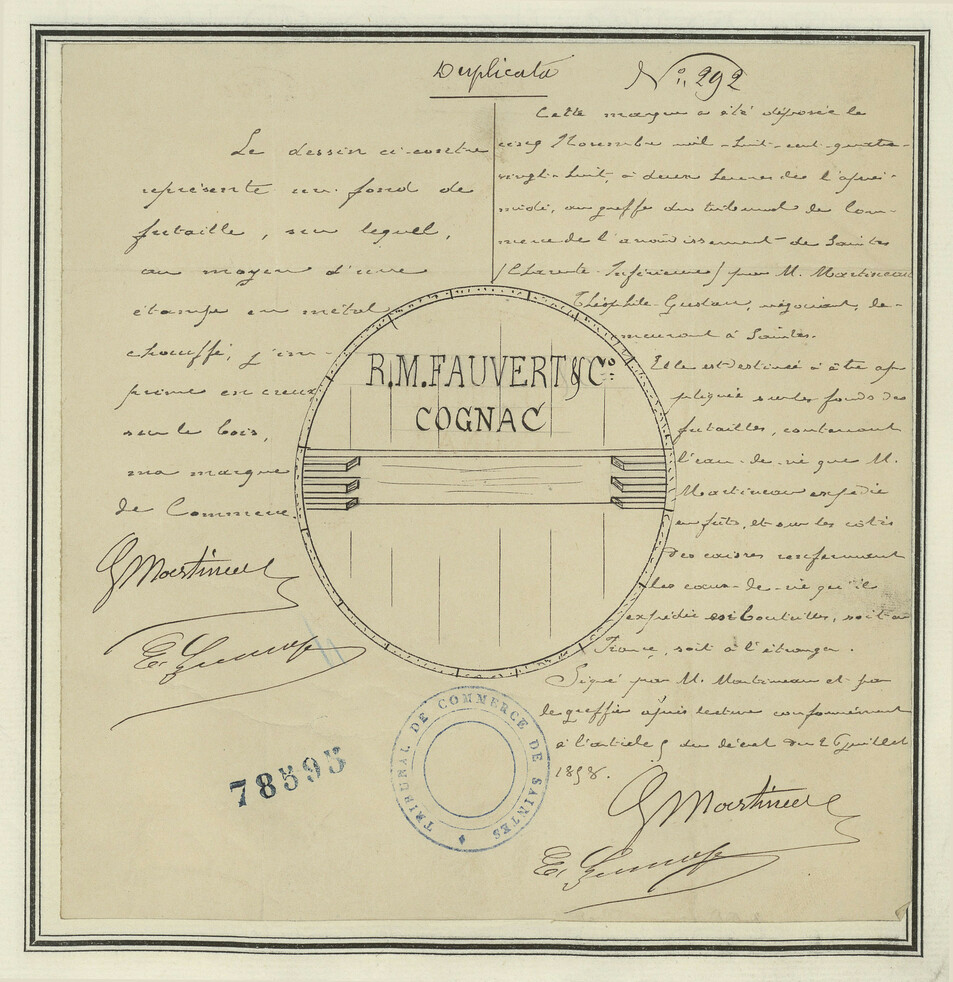 Duplicata
N° 292
Le dessin ci-contre
représente un fond de
futaille, sur lequel,
au moyen d'une
étampe en métal
chauffé, j'im-
prime en creux
sur le bois,
ma marque
de Commerce.
G Martineau
Cette marque a été déposée le
cinq Novembre mil-huit-cent-quatre-
vingt-huit, à deux heures de l'après-
midi, au greffe du tribunal de Com-
merce de l'arrondissement de Saintes
(Charente-Inférieure) par M. Martineau
Théophile-Gustave, négociant, de-
meurant à Saintes.
Elle est destinée à être ap-
pliquée sur les fonds des
futailles, contenant
l'eau-de-vie que M.
Martineau expédie
en fûts, et sur les côtés
des caisses renfermant
les eaux-de-vie qu'il
expédie en bouteilles, soit en
France, soit à l'étranger.
Signé par M. Martineau et par
le greffier après lecture conformément
à l'article 5 du décret du 26 Juillet
1858.
G Martineau
R.M. FAUVERT & Co.
COGNAC
TRIBUNAL DE COMMERCE DE SAINTES
78595